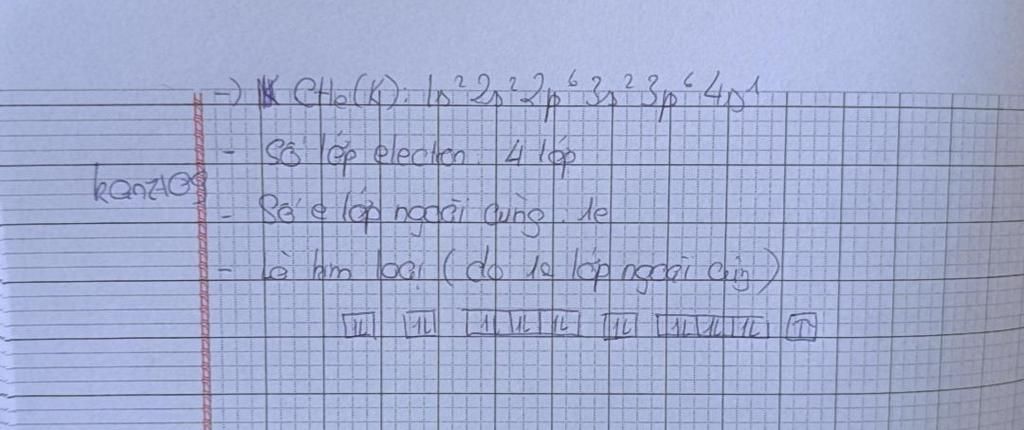 → CHe(K): 1s² 2s² 2p⁶ 3s² 3p⁶ 4s¹
- Số lớp electron: 4 lớp
kanzi09
- Số e lớp ngoài cùng: 1e
- Là kim loại (do 1e lớp ngoài cùng)
↑↓ ↑↓ ↑↓ ↑↓ ↑↓ ↑↓ ↑↓ ↑↓ ↑↓ ↑